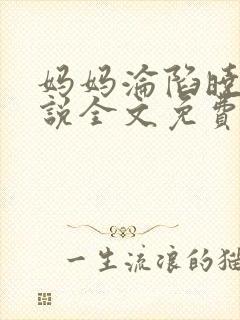 妈妈淪陷曉
說全文免費
一生流浪的猫